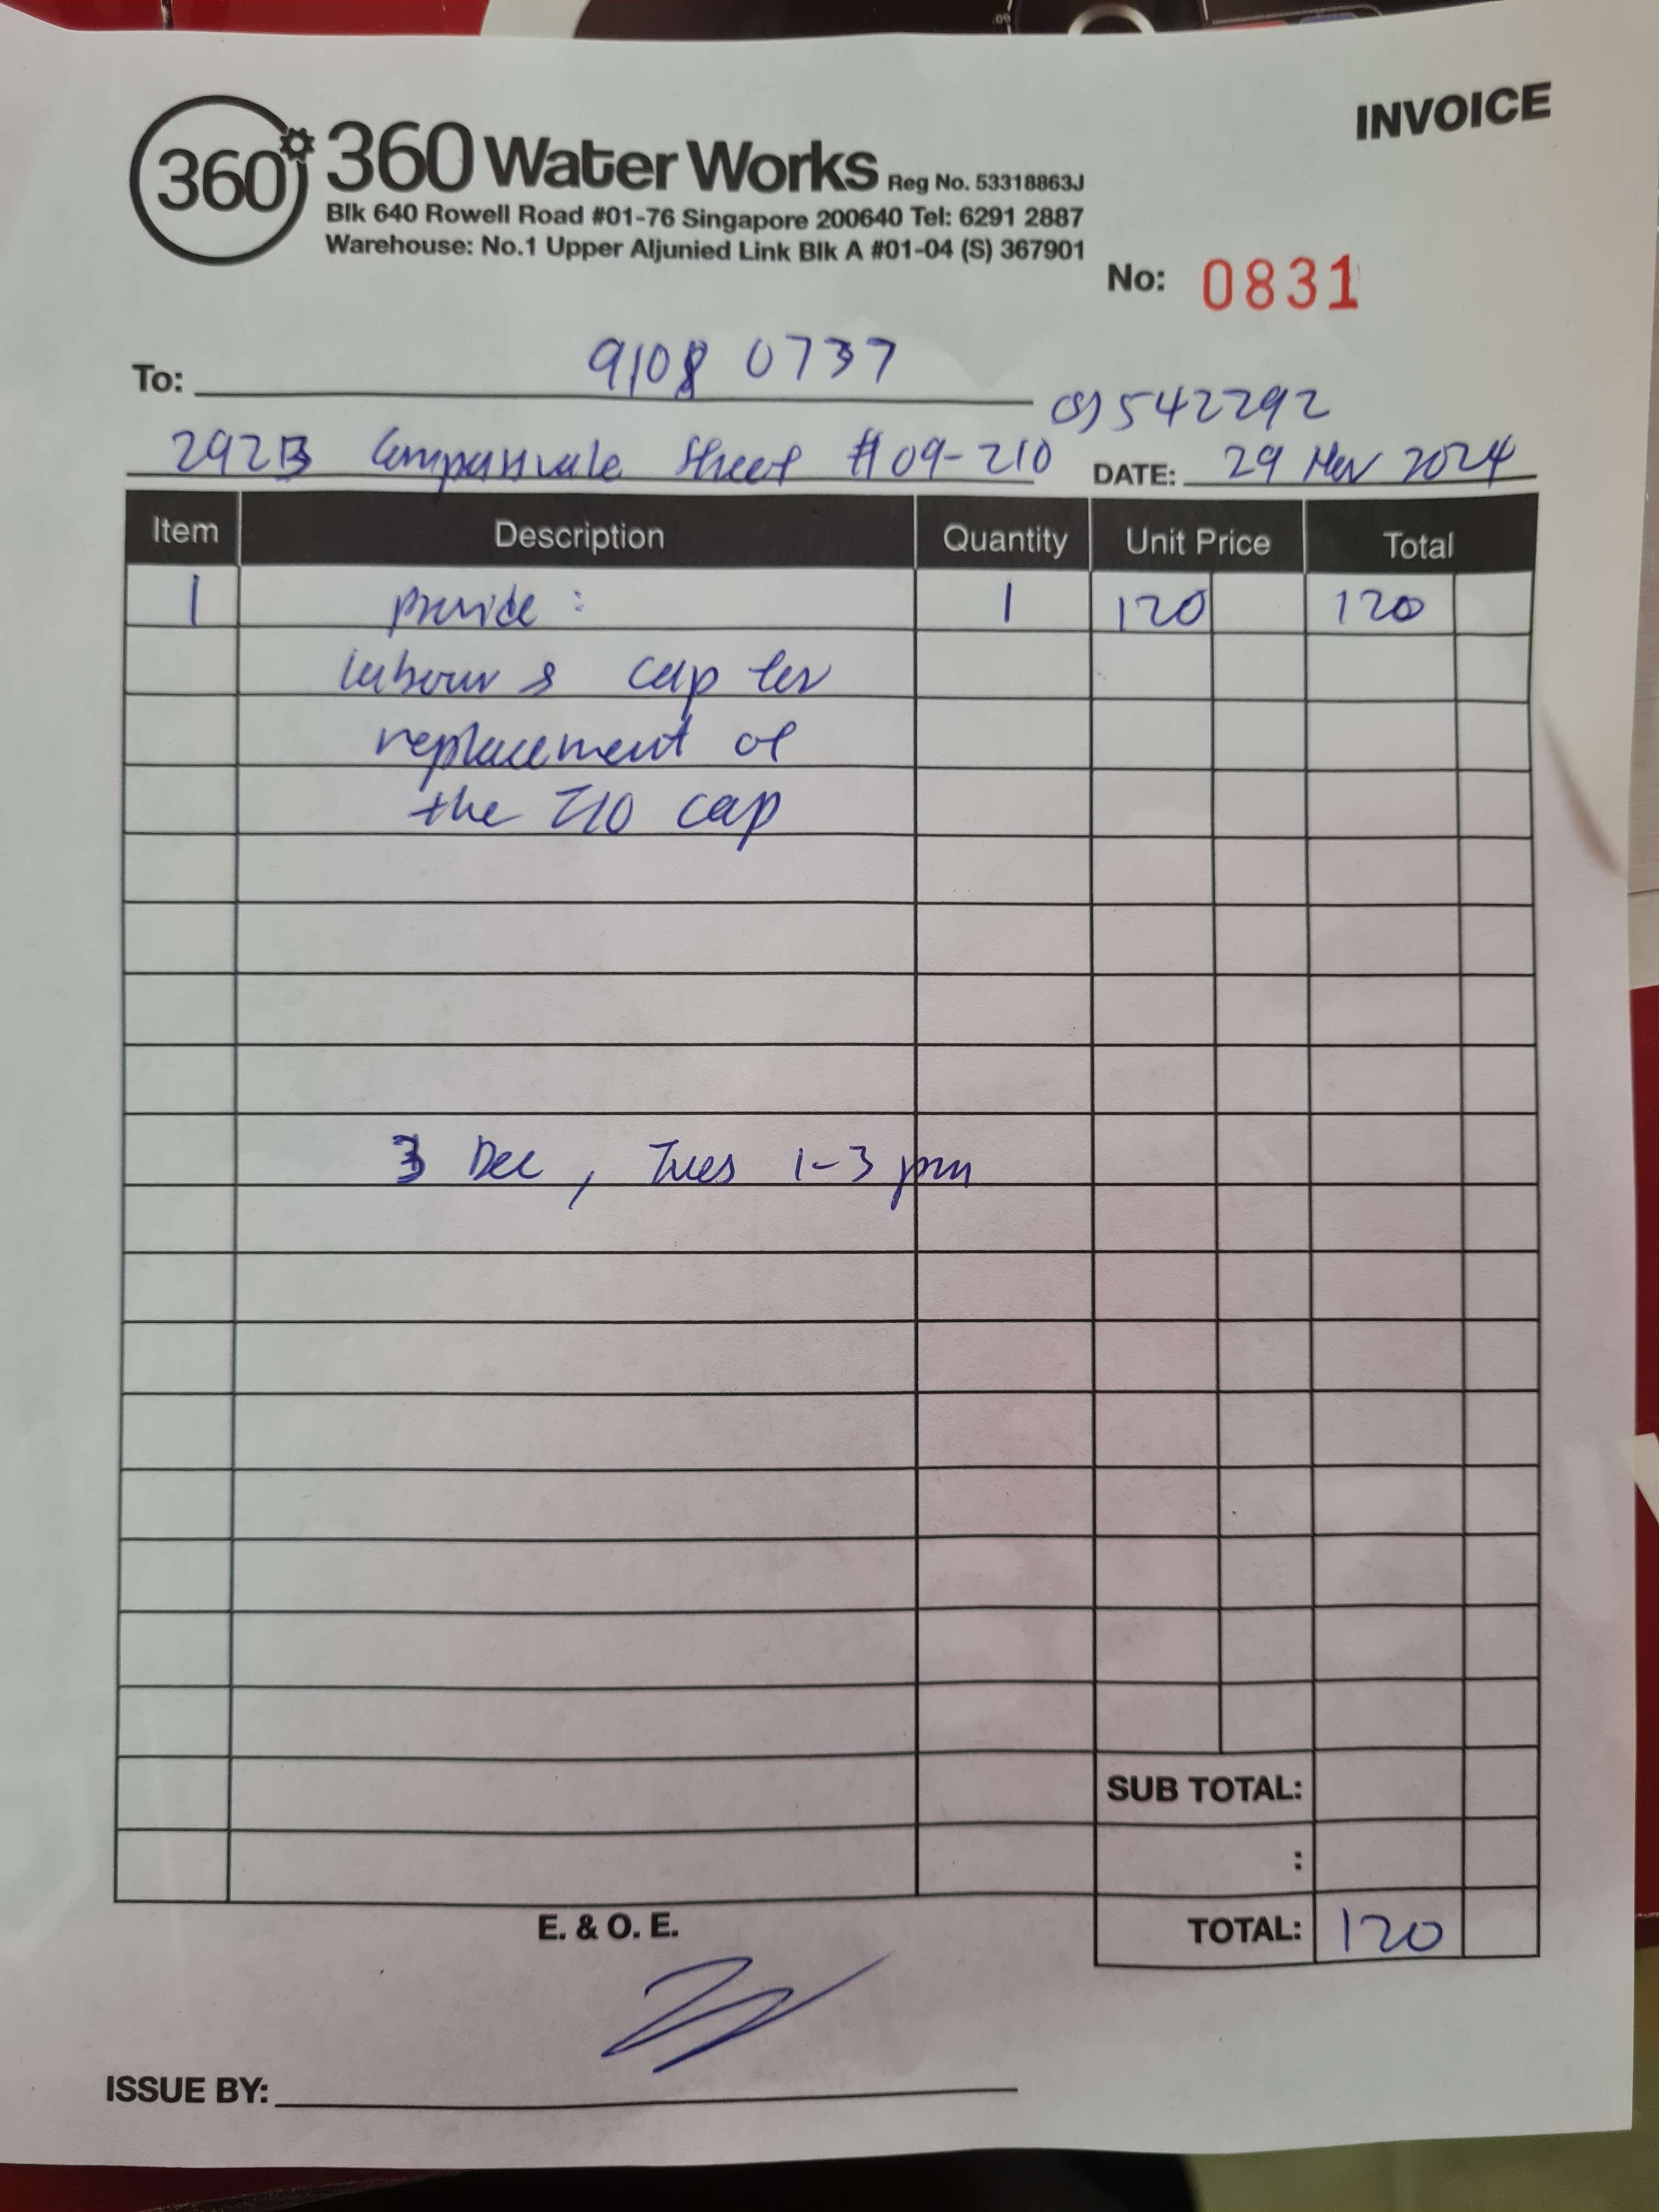 INVOICE
360° 360 Water Works Reg No. 53318863J
Blk 640 Rowell Road #01-76 Singapore 200640 Tel: 6291 2887
Warehouse: No.1 Upper Aljunied Link Blk A #01-04 (S) 367901
No: 0831
To: 9108 0737
(S) 542292
292B Compassvale Street #09-210 DATE: 29 Nov 2024
Item Description Quantity Unit Price Total
1 provide : 1 120 120
labour & cap for
replacement of
the cap
3 Dec, Tues 1-3 pm
SUB TOTAL:
:
E. & O. E. TOTAL: 120
ISSUE BY: